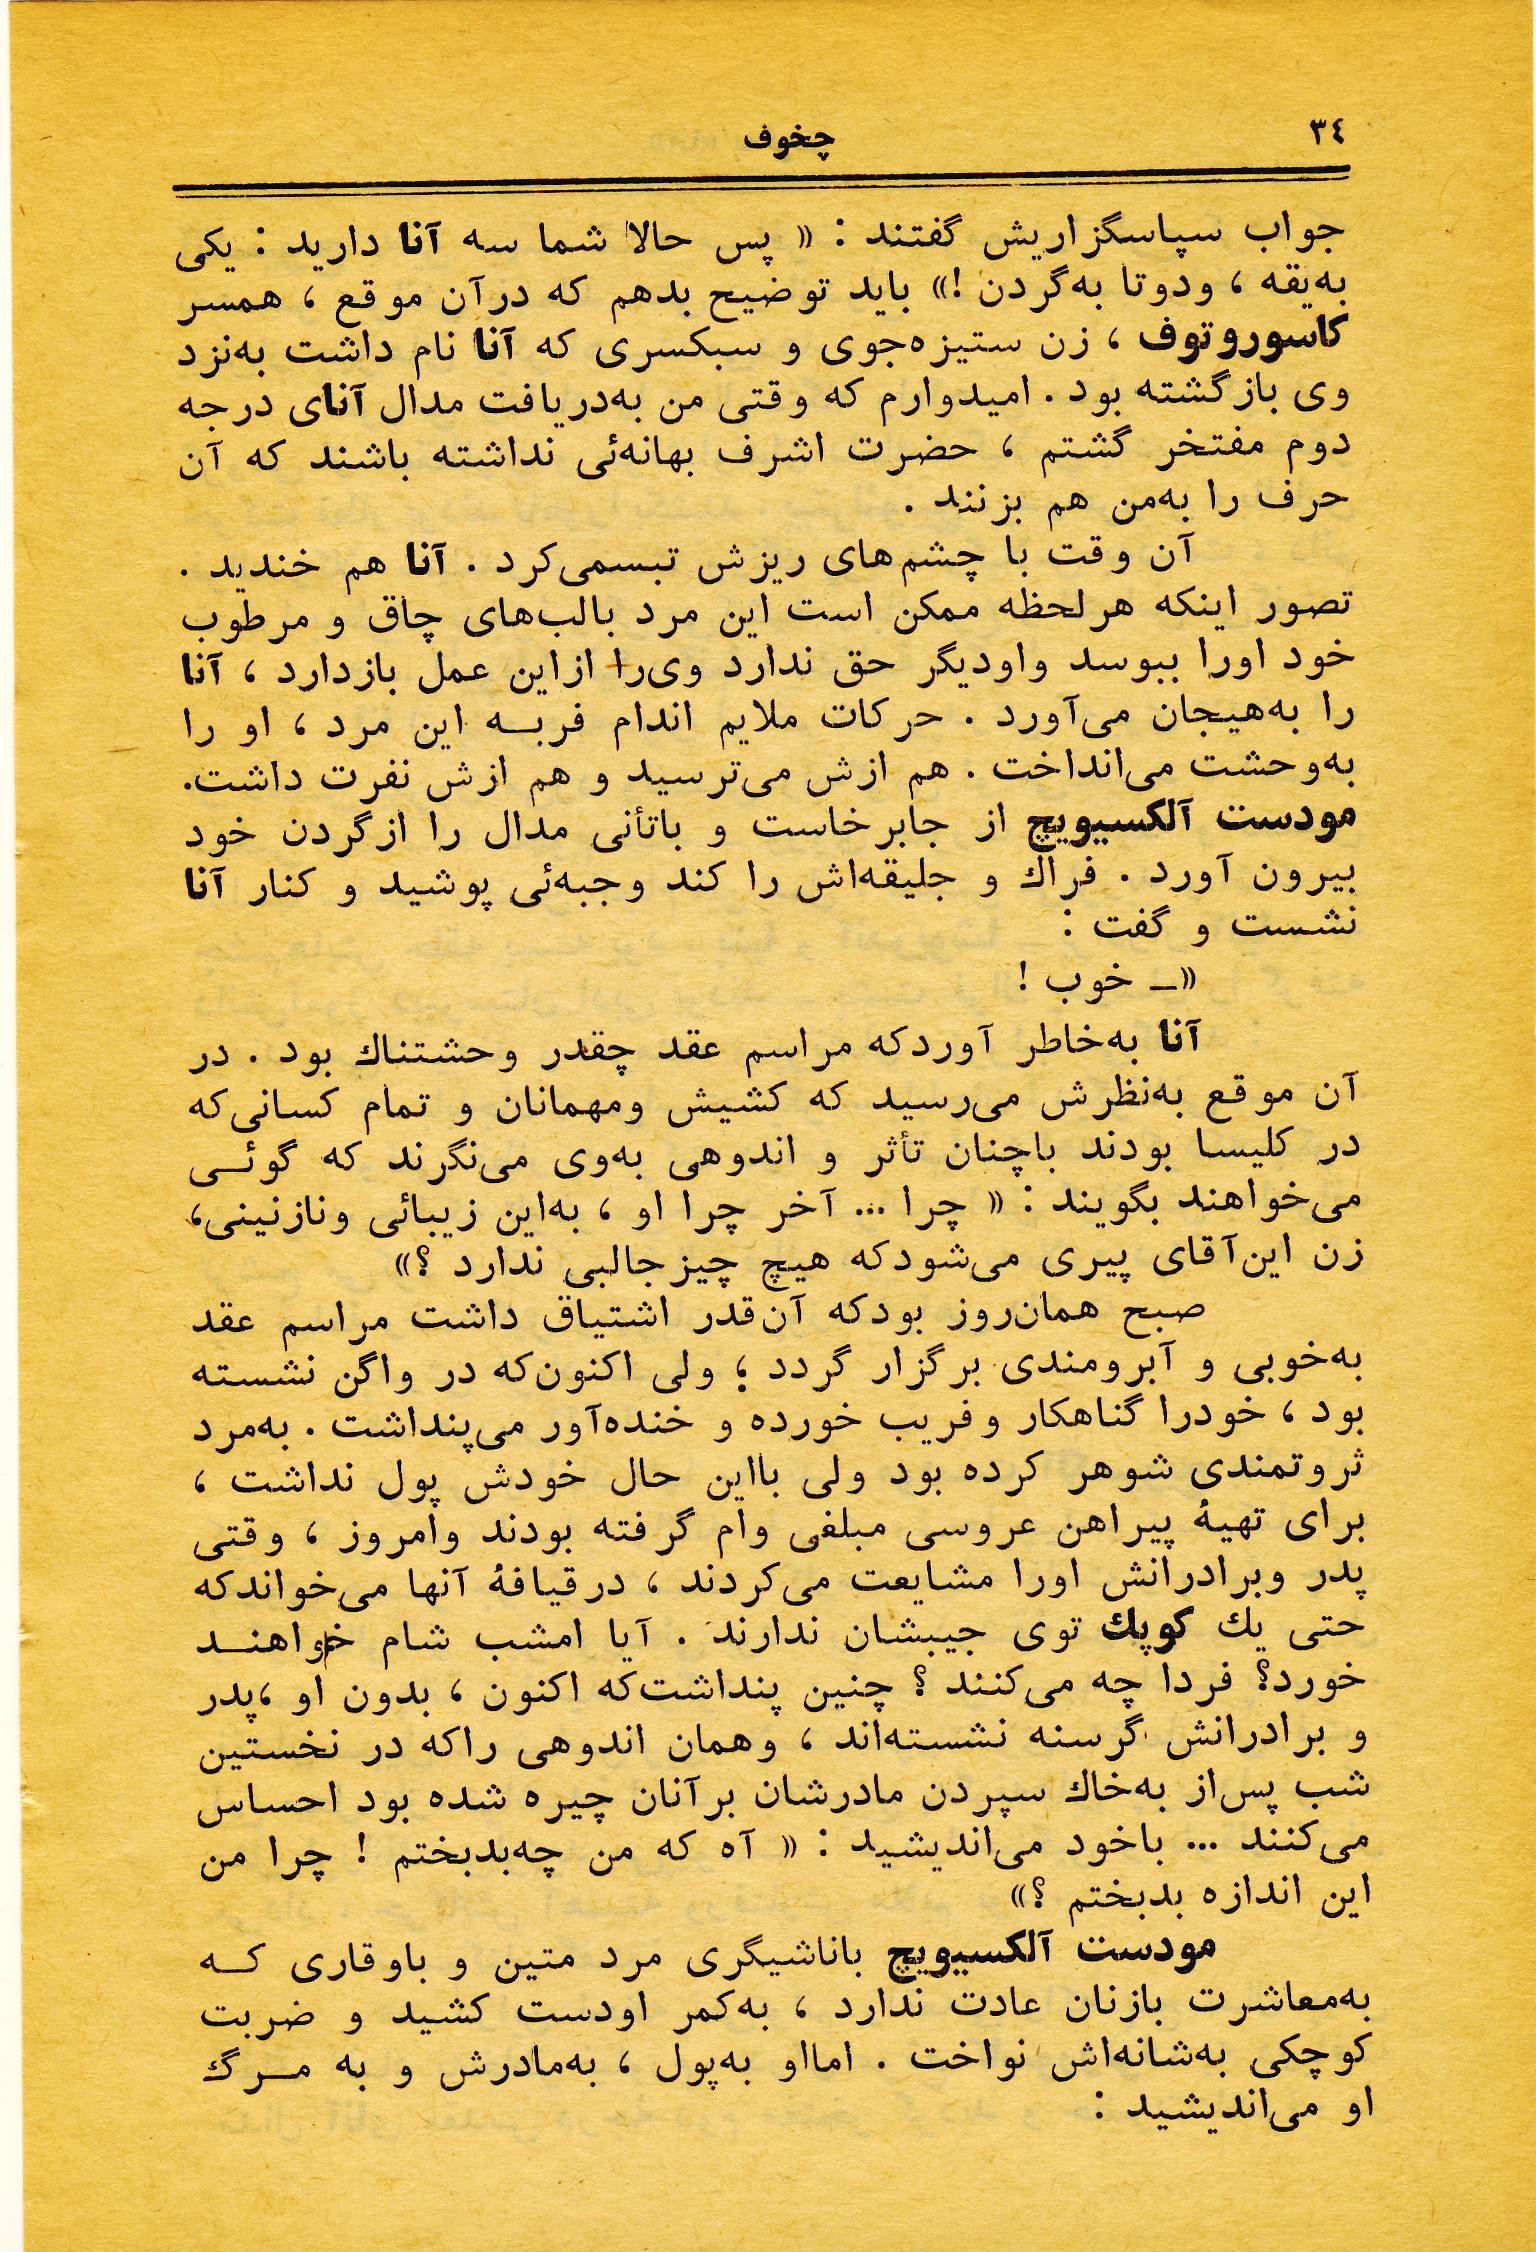 ٣٤
چخوف
جواب سپاسگزاریش گفتند : « پس حالا شما سه آنا دارید : یکی
به‌یقه ، ودوتا به‌گردن !» باید توضیح بدهم که درآن موقع ، همسر
کاسوروتوف ، زن ستیزه‌جوی و سبکسری که آنا نام داشت به‌نزد
وی بازگشته بود . امیدوارم که وقتی من به‌دریافت مدال آنای درجه
دوم مفتخر گشتم ، حضرت اشرف بهانه‌ئی نداشته باشند که آن
حرف را به‌من هم بزنند .
آن وقت با چشم‌های ریزش تبسمی‌کرد . آنا هم خندید .
تصور اینکه هرلحظه ممکن است این مرد بالب‌های چاق و مرطوب
خود اورا ببوسد واودیگر حق ندارد وی‌را ازاین عمل بازدارد ، آنا
را به‌هیجان می‌آورد . حرکات ملایم اندام فربه این مرد ، او را
به‌وحشت می‌انداخت . هم ازش می‌ترسید و هم ازش نفرت داشت.
مودست آلکسیویچ از جابرخاست و باتأنی مدال را ازگردن خود
بیرون آورد . فراك و جلیقه‌اش را کند وجبه‌ئی پوشید و کنار آنا
نشست و گفت :
«ـ خوب !
آنا به‌خاطر آوردکه مراسم عقد چقدر وحشتناك بود . در
آن موقع به‌نظرش می‌رسید که کشیش ومهمانان و تمام کسانی‌که
در کلیسا بودند باچنان تأثر و اندوهی به‌وی می‌نگرند که گوئی
می‌خواهند بگویند : « چرا ... آخر چرا او ، به‌این زیبائی ونازنینی،
زن این‌آقای پیری می‌شودکه هیچ چیزجالبی ندارد ؟»
صبح همان‌روز بودکه آن‌قدر اشتیاق داشت مراسم عقد
به‌خوبی و آبرومندی برگزار گردد ؛ ولی اکنون‌که در واگن نشسته
بود ، خودرا گناهکار وفریب خورده و خنده‌آور می‌پنداشت . به‌مرد
ثروتمندی شوهر کرده بود ولی بااین حال خودش پول نداشت ،
برای تهیهٔ پیراهن عروسی مبلغی وام گرفته بودند وامروز ، وقتی
پدر وبرادرانش اورا مشایعت می‌کردند ، درقیافهٔ آنها می‌خواندکه
حتی یك کوپك توی جیبشان ندارند . آیا امشب شام خواهند
خورد؟ فردا چه می‌کنند ؟ چنین پنداشت‌که اکنون ، بدون او ،پدر
و برادرانش گرسنه نشسته‌اند ، وهمان اندوهی راکه در نخستین
شب پس‌از به‌خاك سپردن مادرشان برآنان چیره شده بود احساس
می‌کنند ... باخود می‌اندیشید : « آه که من چه‌بدبختم ! چرا من
این اندازه بدبختم ؟»
مودست آلکسیویچ باناشیگری مرد متین و باوقاری که
به‌معاشرت بازنان عادت ندارد ، به‌کمر اودست کشید و ضربت
کوچکی به‌شانه‌اش نواخت . امااو به‌پول ، به‌مادرش و به مرگ
او می‌اندیشید :